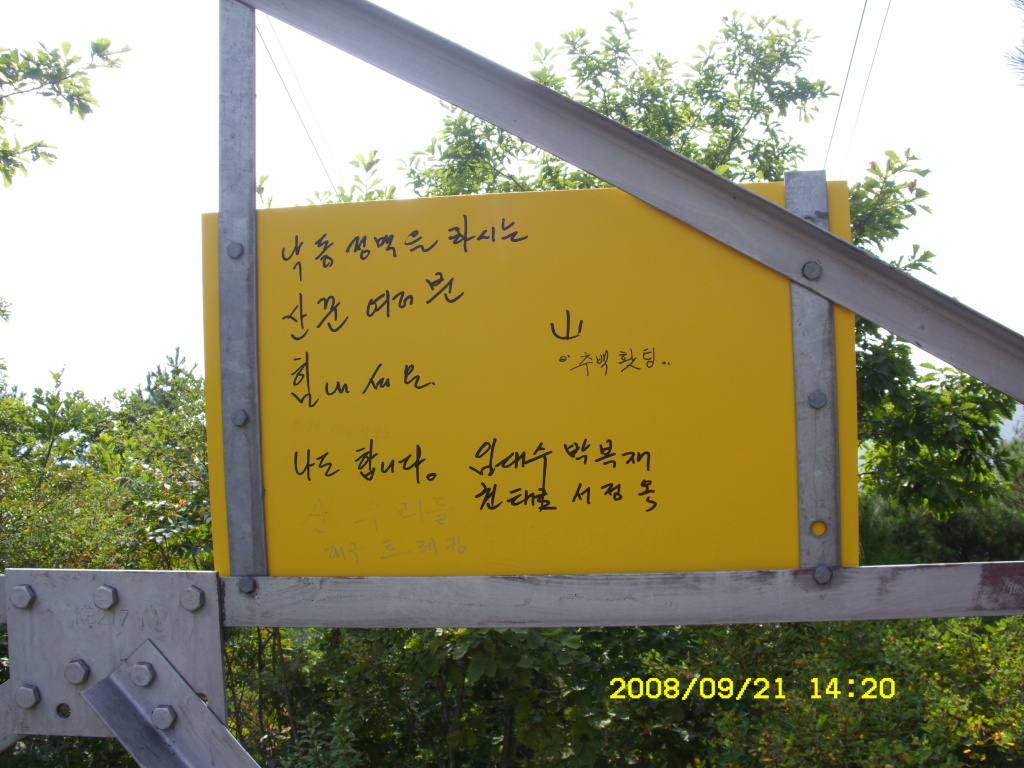 낙동정맥을 하시는
산꾼 여러분
힘내세요.
山
추백 홧팅..
나도 합니다. 임대수 박복재
천태로 서정옥
산 우리들
2008/09/21 14:20